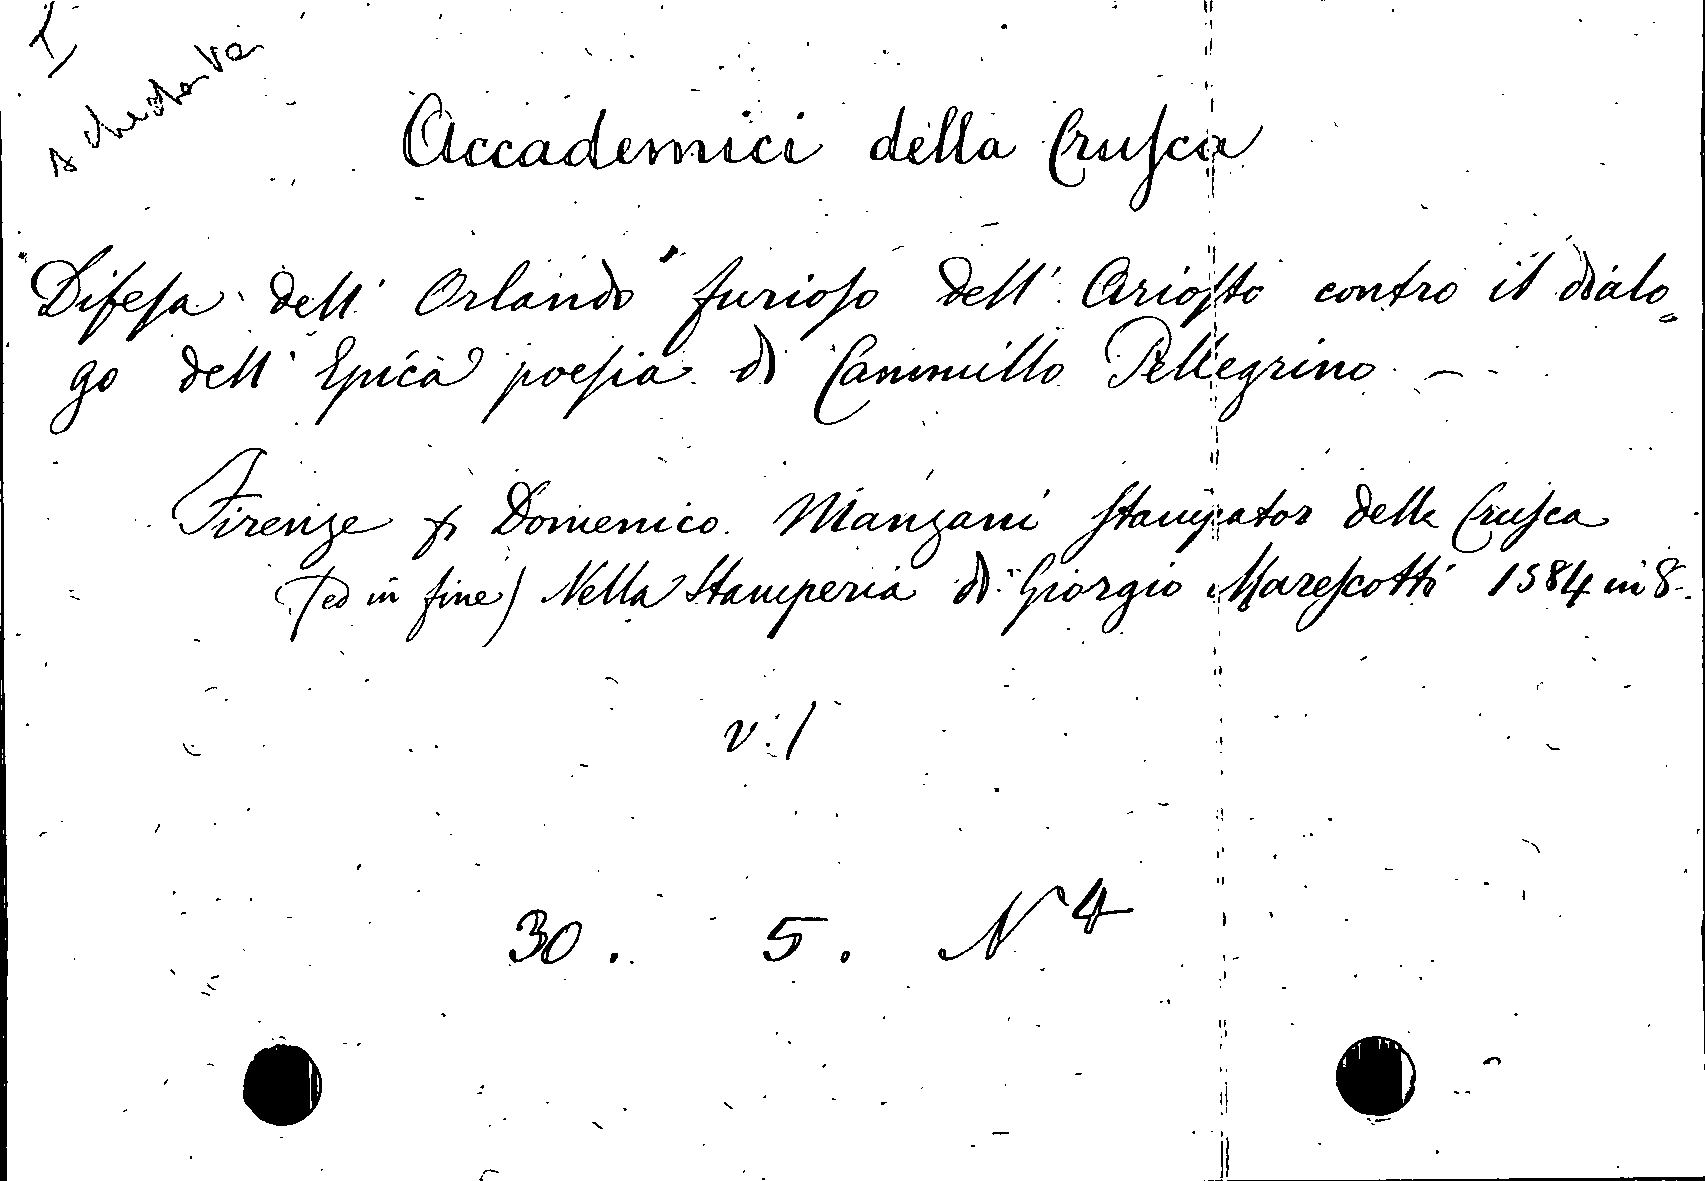 I
schedata
Accademici della Crusca
Difesa dell' Orlando furioso dell' Ariosto contro il dialo=
go dell' Epica poesia di Cammillo Pellegrino —
Firenze p Domenico Manzani Stampator della Crusca
(ed in fine) Nella Stamperia di Giorgio Marescotti 1584 in 8.
v. 1
30. 5. N 4